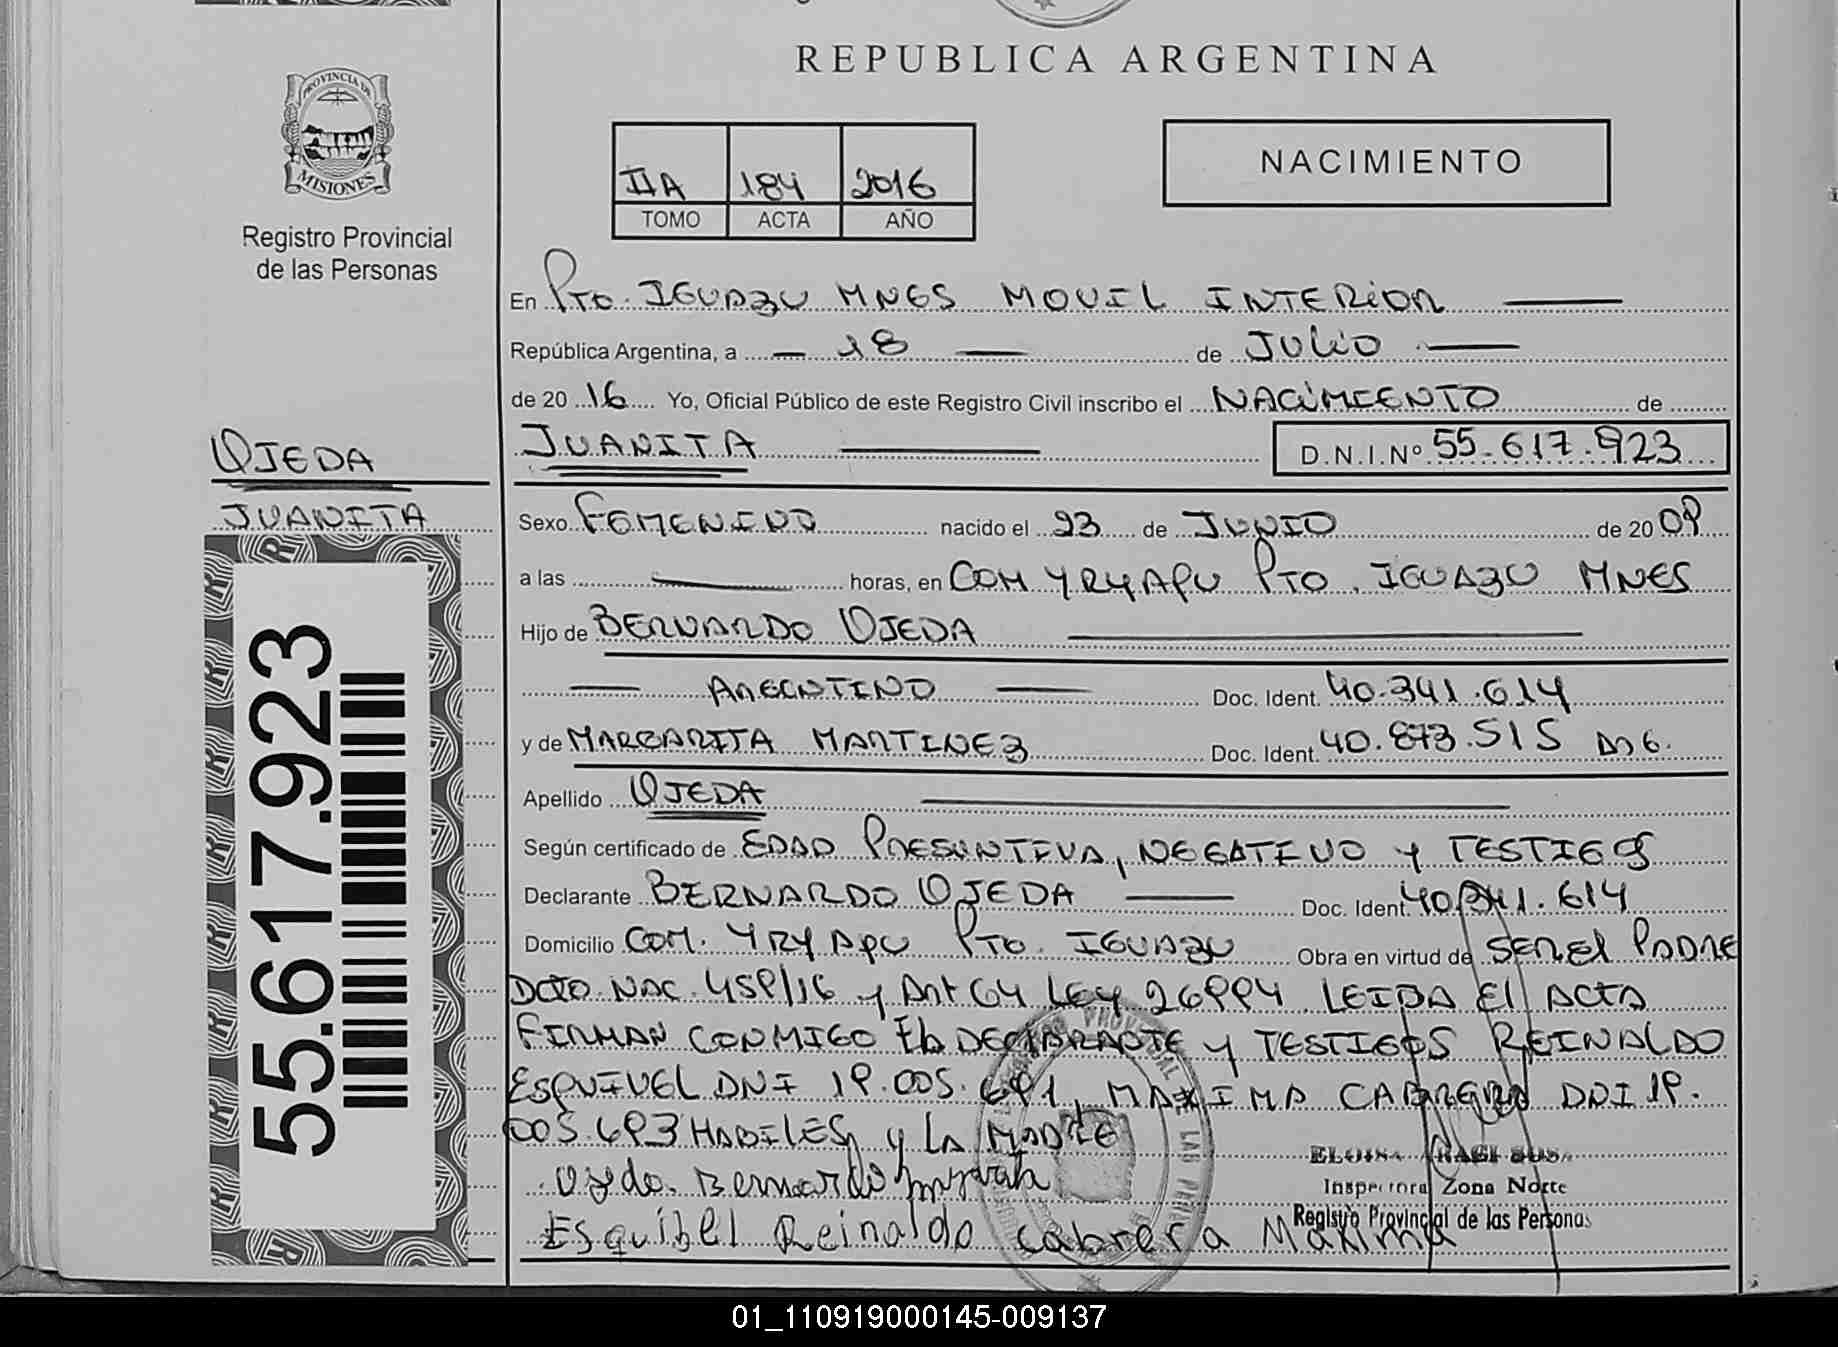 REPUBLICA ARGENTINA
PROVINCIA DE
MISIONES
Registro Provincial
de las Personas
IIA 184 2016
TOMO ACTA AÑO
NACIMIENTO
En Pto. IGUAZU MNES MOVIL INTERIOR
República Argentina, a 18 de JULIO
de 20 16 Yo, Oficial Público de este Registro Civil inscribo el NACIMIENTO de
JUANITA D.N.I.Nº 55.617.923
OJEDA
JUANITA
55.617.923
Sexo FEMENINO nacido el 23 de JUNIO de 20 09
a las horas, en COM YRYAPU PTO. IGUAZU MNES
Hijo de BERNARDO OJEDA
ARGENTINO Doc. Ident. 40.341.614
y de MARGARITA MARTINEZ Doc. Ident. 40.873.515 ARG.
Apellido OJEDA
Según certificado de EDAD PRESUNTIVA, NEGATIVO Y TESTIGOS
Declarante BERNARDO OJEDA Doc. Ident. 40.341.614
Domicilio COM. YRYAPU PTO. IGUAZU Obra en virtud de SER EL PADRE
DCTO NAC. 459/16 y Art 64 LEY 26994 LEIDA El ACTA
FIRMAN CONMIGO EL DECLARANTE y TESTIGOS REINALDO
ESQUIVEL DNI 19.005.691, MAXIMA CABRERA DNI 19.
005.693 HABILES, y LA MADRE
Ojeda Bernardo
Esquibel Reinaldo Cabrera Maxima
ELOISA
Inspectora Zona Norte
Registro Provincial de las Personas
01_110919000145-009137